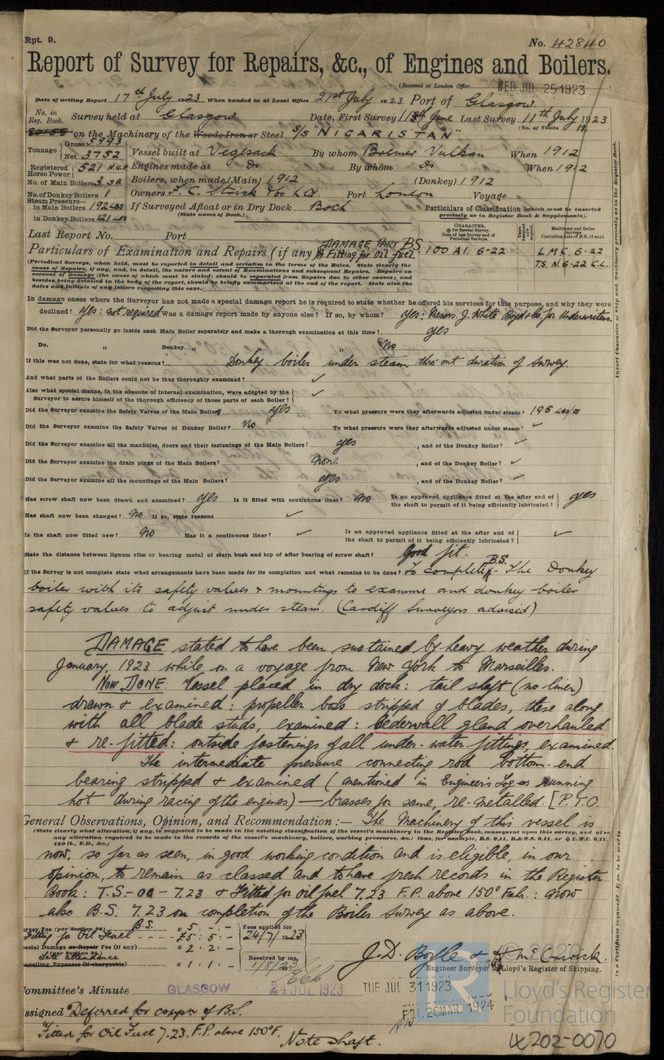 Rpt. 9. No. 42840
Report of Survey for Repairs, &c., of Engines and Boilers.
(Received at London Office WED. JUL. 25 1923
Date of writing Report 17th July 1923 When handed in at Local Office 21st July 1923 Port of Glasgow
No. in Reg. Book. Survey held at Glasgow Date, First Survey June Last Survey 11th July 1923
on the Machinery of the Wood, Iron or Steel S/S "NIGARISTAN" (No. of Visits
Tonnage Gross 5993 Net 3752 Vessel built at Vegesack By whom Bremer Vulkan When 1912
Registered Horse Power 521 N.H.P. Engines made at Do. By whom Do. When 1912
No. of Main Boilers Boilers, when made (Main) 1912 (Donkey) 1912
No. of Donkey Boilers 1 Owners F. C. Strick & Co Ld Port London Voyage
Steam Pressure in Main Boilers 192 lbs If Surveyed Afloat or in Dry Dock Both
(State name of Dock.)
in Donkey Boilers 121 lbs
Particulars of Classification (which must be inserted precisely as in Register Book & Supplements).
Last Report No. Port
Particulars of Examination and Repairs (if any) DAMAGE Part B.S. & Fitting for Oil fuel. 100 A1. 6-22 L.M.C. 6-22
T.S. N. 6-22 C.L.
In damage cases where the Surveyor has not made a special damage report he is required to state whether he offered his services for this purpose, and why they were
declined? Yes: not required Was a damage report made by anyone else? If so, by whom? yes: Messrs. J. White Boyd & Co. for Underwriters
Did the Surveyor personally go inside each Main Boiler separately and make a thorough examination at this time? yes
Do. „ Donkey „ No
If this was not done, state for what reasons? Donkey boiler under steam thro'out duration of survey.
And what parts of the Boilers could not be thoroughly examined? ✓
Also what special means, in the absence of internal examination, were adopted by the
Surveyor to assure himself of the thorough efficiency of those parts of each Boiler? ✓
Did the Surveyor examine the Safety Valves of the Main Boilers yes To what pressure were they afterwards adjusted under steam? 195 lbs
Did the Surveyor examine the Safety Valves of Donkey Boiler? No To what pressure were they afterwards adjusted under steam? ✓
Did the Surveyor examine all the manholes, doors and their fastenings of the Main Boilers? yes, and of the Donkey Boiler? ✓
Did the Surveyor examine the drain plugs of the Main Boilers? None, and of the Donkey Boiler? ✓
Did the Surveyor examine all the mountings of the Main Boilers? yes, and of the Donkey Boiler? ✓
Has screw shaft now been drawn and examined? yes Is it fitted with continuous liner? No Is an approved appliance fitted at the after end of the shaft to permit of it being efficiently lubricated? yes
Has shaft now been changed? No If so, state reasons ✓
Is the shaft now fitted new? No Has it a continuous liner? ✓ Is an approved appliance fitted at the after end of the shaft to permit of it being efficiently lubricated? ✓
State the distance between lignum vitæ or bearing metal of stern bush and top of after bearing of screw shaft? Good fit.
If the Survey is not complete state what arrangements have been made for its completion and what remains to be done? To complete B.S. - The Donkey
boiler with its safety valves & mountings to examine and donkey boiler
safety valves to adjust under steam. (Cardiff Surveyors advised)
DAMAGE stated to have been sustained by heavy weather during
January, 1923 while on a voyage from New York to Marseilles.
NOW DONE Vessel placed in dry dock: tail shaft (no liner)
drawn & examined: propeller boss stripped of blades, these along
with all blade studs, examined: Cederwall gland overhauled
& re-fitted: outside fastenings of all under-water fittings, examined.
The intermediate pressure connecting rod bottom-end
bearing stripped & examined (mentioned in Engineer's Log as running
hot during racing of the engines) — brasses for same, re-metalled [P.T.O.
General Observations, Opinion, and Recommendation:— The Machinery of this vessel is
now, so far as seen, in good working condition and is eligible, in our
opinion, to remain as classed and to have fresh records in the Register
Book: T.S-OG - 7.23 & Fitted for oil fuel 7.23 F.P. above 150° Fah.: Now
also B.S. 7.23 on completion of the Boiler Survey as above.
Fitting for Oil Fuel £5 : 5 : - Fees applied for 24/7/1923
Special Damage or Repair Fee (if any) £ 2 : 2 : -
Late attendance £ 1 : 1 : - Received by me,
J. D. Boyle &
Engineer Surveyor to Lloyd's Register of Shipping.
Committee's Minute GLASGOW 24 JUL 1923 TUE JUL 31 1923
Assigned Deferred for compn of B.S.
Fitted for Oil Fuel 7.23. F.P. above 150°F.
Note shaft.
Lloyd's Register
Foundation
W202-0070